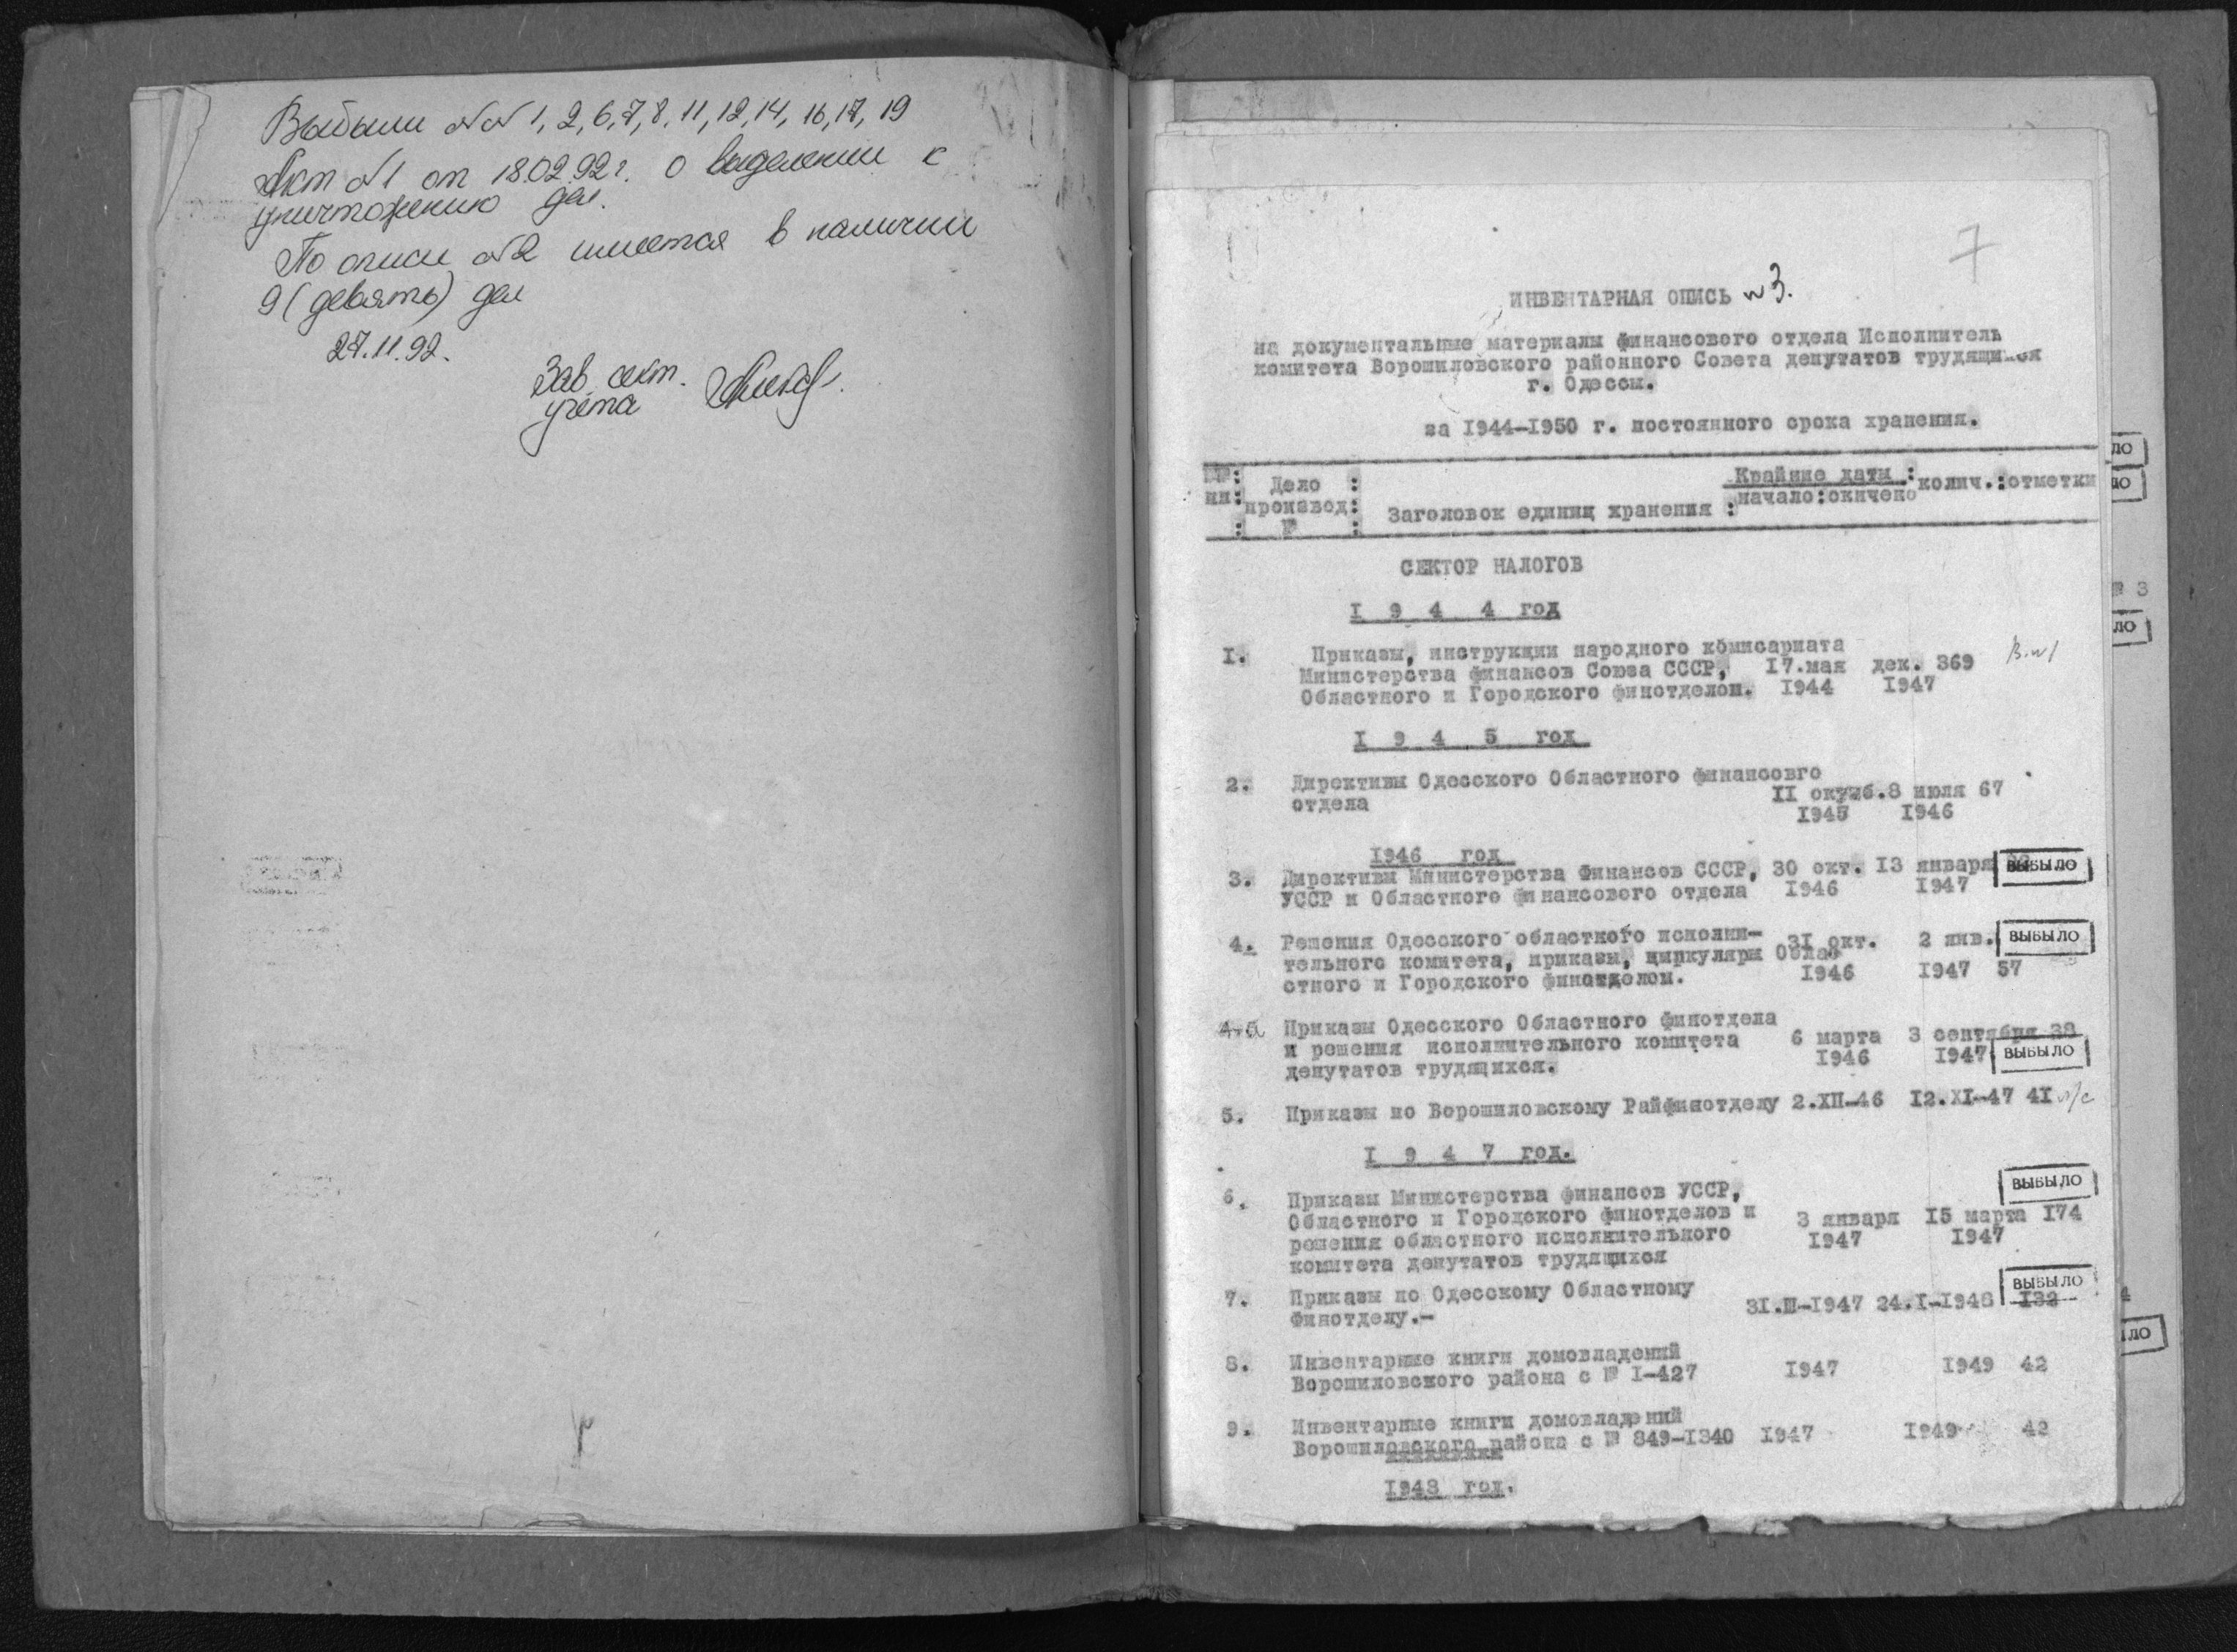 Выбыли №№ 1, 2, 6, 7, 8, 11, 12, 14, 16, 17, 19
Акт №1 от 18.02.92г. о выделении к
уничтожению дел.
По описи №2 имеется в наличии
9 (девять) дел
27.11.92.
Зав. сект.
учёта
7
ИНВЕНТАРНАЯ ОПИСЬ №3.
на документальные материалы финансового отдела Исполнитель
комитета Ворошиловского районного Совета депутатов трудящихся
г. Одессы.
за 1944-1950 г. постоянного срока хранения.
№№: Дело : Крайние даты : колич.: отметки
пп: производ: Заголовок единиц хранения : начало:окичено
: № :
СЕКТОР НАЛОГОВ
1 9 4 4 год
1. Приказы, инструкции народного комисариата
Министерства финансов Союза СССР, 17.мая дек. 369
Областного и Городского финотделом. 1944 1947
1 9 4 5 год
2. Директивы Одесского Областного финансовго
отдела 11 октяб. 8 июля 67
1945 1946
1946 год
3. Директивы Министерства Финансов СССР, 30 окт. 13 января ВЫБЫЛО
УССР и Областного финансового отдела 1946 1947
4. Решения Одесского областного исполни- 31 окт. 2 янв. ВЫБЫЛО
тельного комитета, приказы, циркуляры Обла
стного и Городского финотделом. 1946 1947 57
4-а Приказы Одесского Областного финотдела
и решения исполнительного комитета 6 марта 3 сентября 38
депутатов трудящихся. 1946 1947 ВЫБЫЛО
5. Приказы по Ворошиловскому Райфинотделу 2.XII-46 12.XI-47 41 л/с
1 9 4 7 год.
6. Приказы Министерства финансов УССР, ВЫБЫЛО
Областного и Городского финотделов и 3 января 15 марта 174
решения областного исполнительного 1947 1947
комитета депутатов трудящихся
7. Приказы по Одесскому Областному ВЫБЫЛО
Финотделу.- 31.III-1947 24.I-1948 132
8. Инвентарные книги домовладений
Ворошиловского района с № 1-427 1947 1949 42
9. Инвентарные книги домовладений
Ворошиловского района с № 849-1340 1947 1949 42
1948 год.
ЛО
ЛО
№ 3
ЛО
ЛО